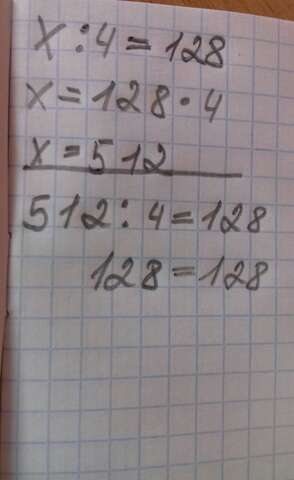 x:4=128
x=128·4
x=512
512:4=128
128=128